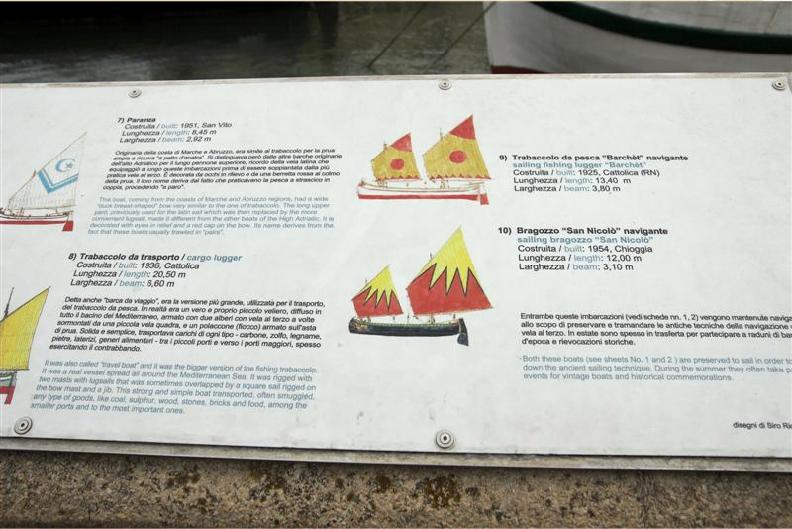 7) Paranza
Costruita / built: 1951, San Vito
Lunghezza / length: 8,45 m
Larghezza / beam: 2,92 m
Originaria della costa di Marche e Abruzzo, era simile al trabaccolo per la prua
ampia e ricurva "a petto d'anatra". Si distingueva però dalle altre barche originarie
dell'alto Adriatico per il lungo pennone superiore, ricordo della vela latina che
equipaggiò a lungo queste imbarcazioni prima di essere soppiantata dalla più
pratica vela al terzo. È decorata da occhi in rilievo e da una berretta rossa al colmo
della prua. Il loro nome deriva dal fatto che praticavano la pesca a strascico in
coppia, procedendo "a paro".
This boat, coming from the coasts of Marche and Abruzzo regions, had a wide
"duck breast-shaped" bow very similar to the one of trabaccolo. The long upper
yard, previously used for the latin sail which was then replaced by the more
convenient lugsail, made it different from the other boats of the High Adriatic. It is
decorated with eyes in relief and a red cap on the bow. Its name derives from the
fact that these boats usually trawled in "pairs".
8) Trabaccolo da trasporto / cargo lugger
Costruita / built: 1936, Cattolica
Lunghezza / length: 20,50 m
Larghezza / beam: 5,60 m
Detta anche "barca da viaggio", era la versione più grande, utilizzata per il trasporto,
del trabaccolo da pesca. In realtà era un vero e proprio piccolo veliero, diffuso in
tutto il bacino del Mediterraneo, armato con due alberi con vela al terzo a volte
sormontati da una piccola vela quadra, e un polaccone (fiocco) armato sull'asta
di prua. Solida e semplice, trasportava carichi di ogni tipo - carbone, zolfo, legname,
pietre, laterizi, generi alimentari - tra i piccoli porti e verso i porti maggiori, spesso
esercitando il contrabbando.
It was also called "travel boat" and it was the bigger version of the fishing trabaccolo.
It was a real vessel spread all around the Mediterranean Sea. It was rigged with
two masts with lugsails that was sometimes overlapped by a square sail rigged on
the bow mast and a jib. This strong and simple boat transported, often smuggled,
any type of goods, like coal, sulphur, wood, stones, bricks and food, among the
smaller ports and to the most important ones.
9) Trabaccolo da pesca "Barchèt" navigante
sailing fishing lugger "Barchèt"
Costruita / built: 1925, Cattolica (RN)
Lunghezza / length: 13,40 m
Larghezza / beam: 3,80 m
10) Bragozzo "San Nicolò" navigante
sailing bragozzo "San Nicolò"
Costruita / built: 1954, Chioggia
Lunghezza / length: 12,00 m
Larghezza / beam: 3,10 m
Entrambe queste imbarcazioni (vedi schede nr. 1, 2) vengono mantenute naviga
allo scopo di preservare e tramandare le antiche tecniche della navigazione
vela al terzo. In estate sono spesso in trasferta per partecipare a raduni di bar
d'epoca e rievocazioni storiche.
Both these boats (see sheets No. 1 and 2 ) are preserved to sail in order to
down the ancient sailing technique. During the summer they often take p
events for vintage boats and historical commemorations.
disegni di Siro Ric